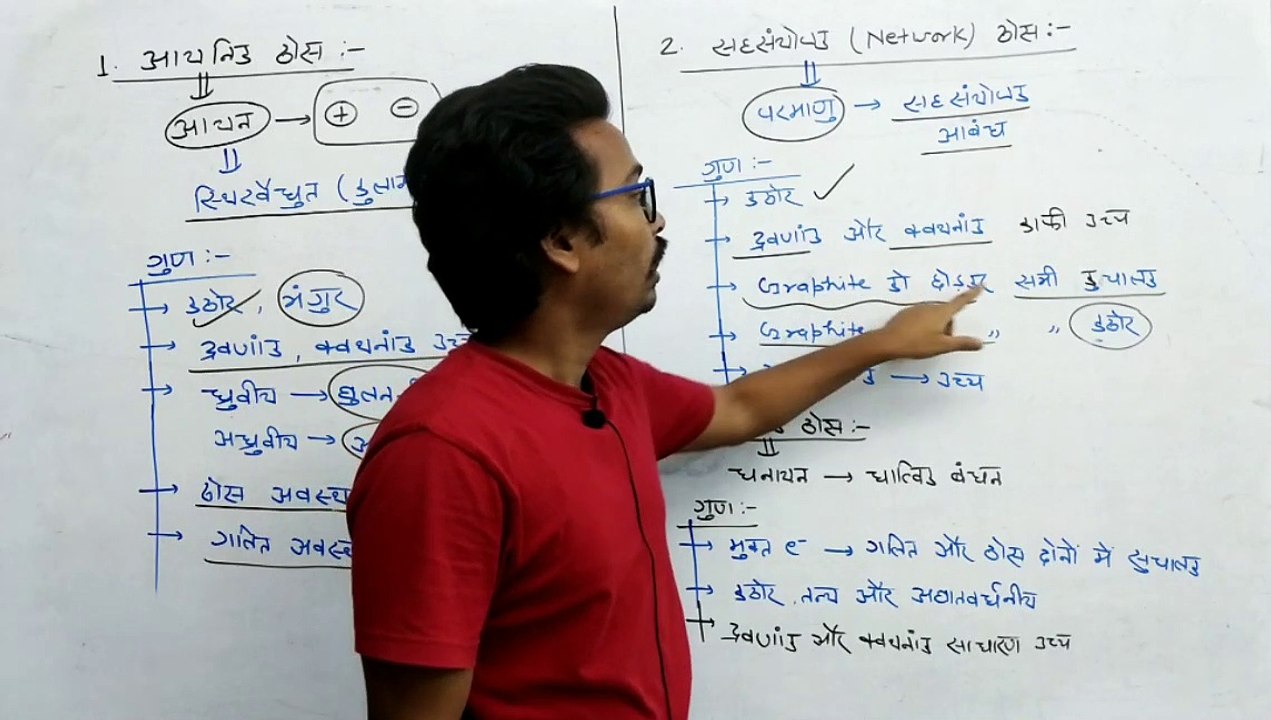 1. आयनिक ठोस :-
आयन → + -
स्थिरवैद्युत (कुलाम
गुण :-
कठोर, भंगुर
द्रवणांक, क्वथनांक उच्च
ध्रुवीय → घुलन
अध्रुवीय → अ
ठोस अवस्था
गलित अवस्था
2. सहसंयोजक (Network) ठोस :-
परमाणु → सहसंयोजक
आबंध
गुण :-
कठोर ✓
द्रवणांक और क्वथनांक काफी उच्च
Graphite को छोड़कर सभी कुचालक
Graphite " " कठोर
→ उच्च
ठोस :-
धनायन → धात्विक बंधन
गुण :-
मुक्त e- → गलित और ठोस दोनों में सुचालक
कठोर, तन्य और अघातवर्धनीय
द्रवणांक और क्वथनांक साधारण उच्च